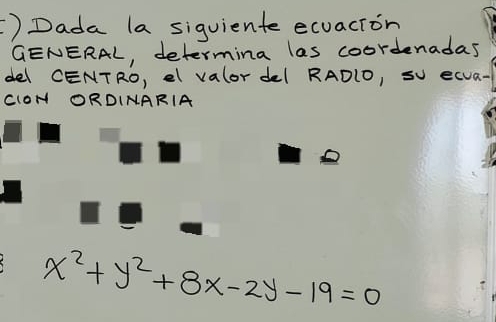 ) Dada la siguiente ecuación
GENERAL, determina las coordenadas
del CENTRO, el valor del RADIO, su ecua-
CION ORDINARIA
x²+y²+8x-2y-19=0